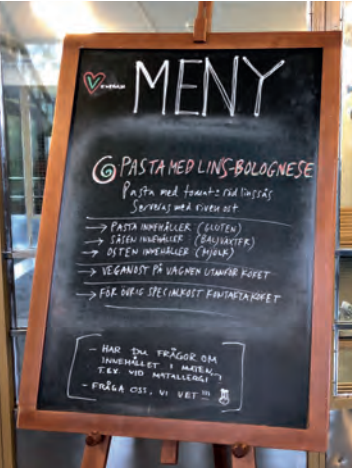 MENY
PASTA MED LINS-BOLOGNESE
Pasta med tomat- & röd linssås
Serveras med riven ost
→ PASTA INNEHÅLLER (GLUTEN)
→ SÅSEN INNEHÅLLER (BALJVÄXTER)
→ OSTEN INNEHÅLLER (MJÖLK)
→ VEGANOST PÅ VAGNEN UTANFÖR KÖKET
→ FÖR ÖVRIG SPECIALKOST KONTAKTA KÖKET
- HAR DU FRÅGOR OM
INNEHÅLLET I MATEN,
T.EX. VID MATALLERGI
- FRÅGA OSS, VI VET!!!